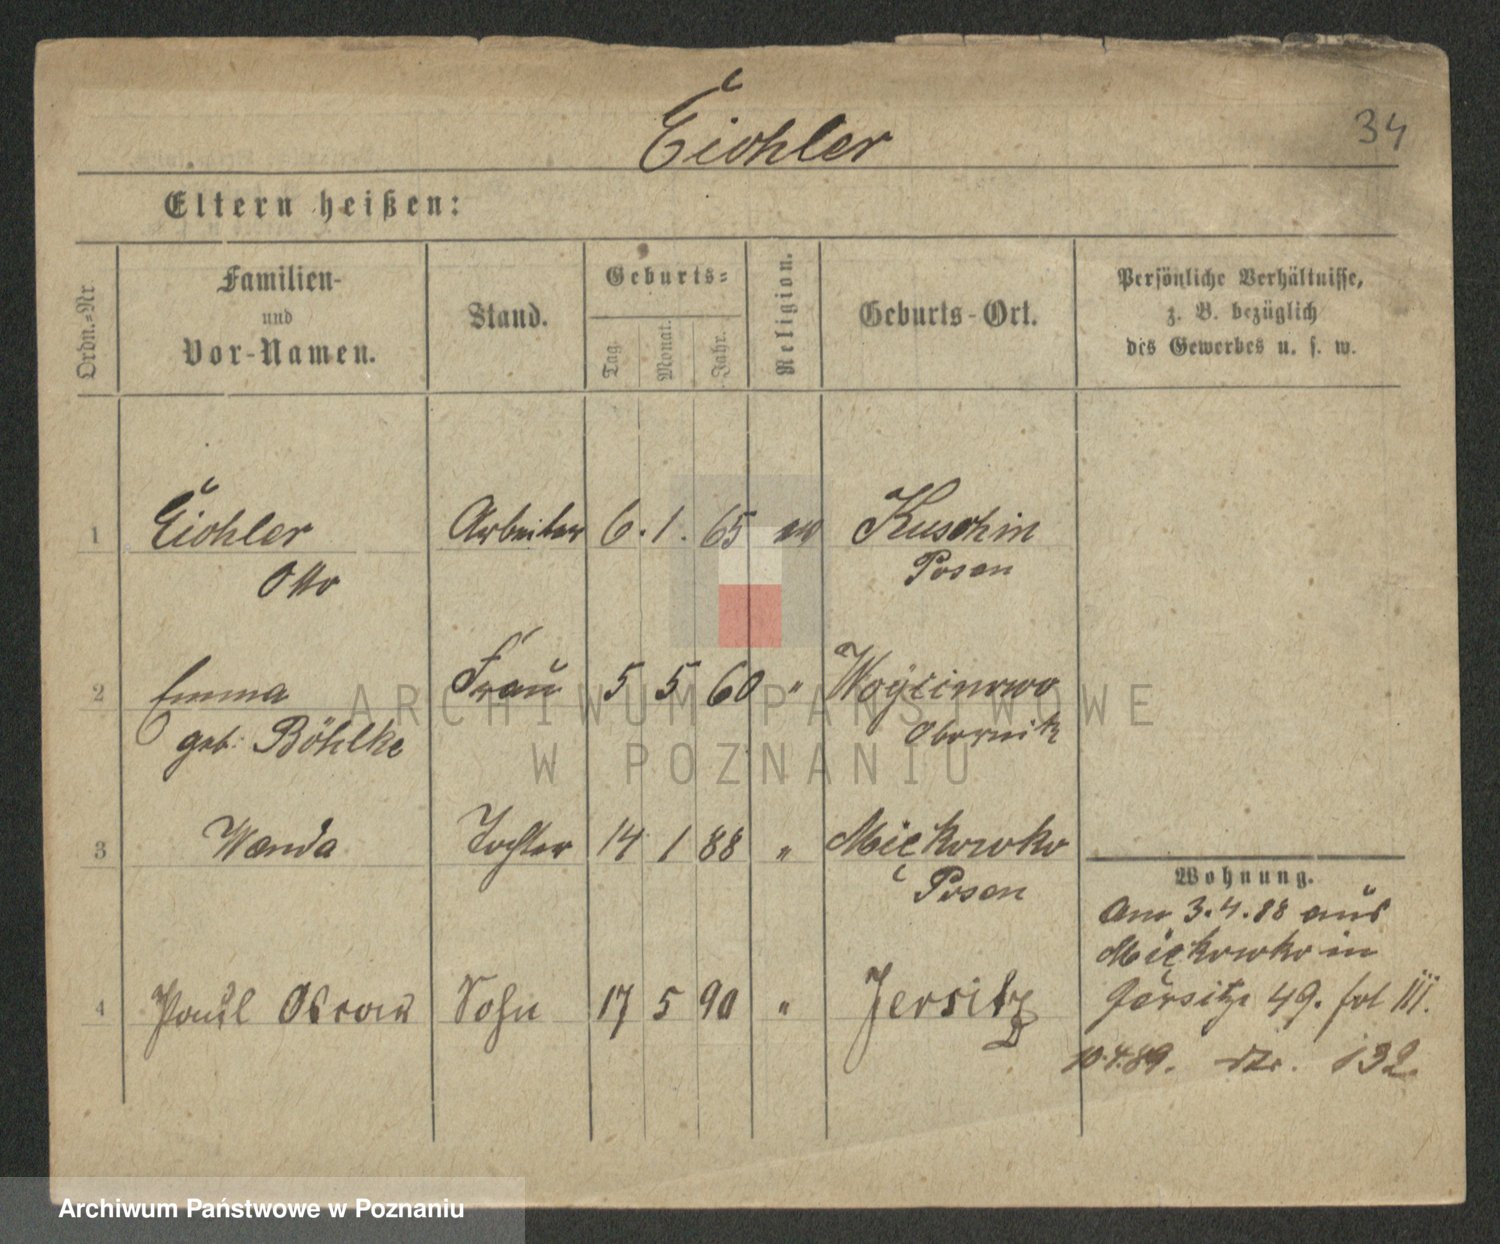 Eichler
34
Eltern heißen:
Ordn.-Nr
Familien-
und
Vor-Namen.
Stand.
Geburts-
Tag.
Monat.
Jahr.
Religion.
Geburts-Ort.
Persönliche Verhältnisse,
z. B. bezüglich
des Gewerbes u. s. w.
1 Eichler Arbeiter 6. 1. 65 ev Kuschin
Otto Posen
2 Emma Frau 5 5 60 " Woycinowo
geb. Böhlke Obornik
3 Wanda Tochter 14 1 88 " Miękowko
Posen
Wohnung.
Am 3.4.88 aus
Miękowko in
Jersitz 49. fol III.
4 Paul Oscar Sohn 17 5 90 " Jersitz
10.4.89. 132.
ARCHIWUM PAŃSTWOWE
W POZNANIU
Archiwum Państwowe w Poznaniu